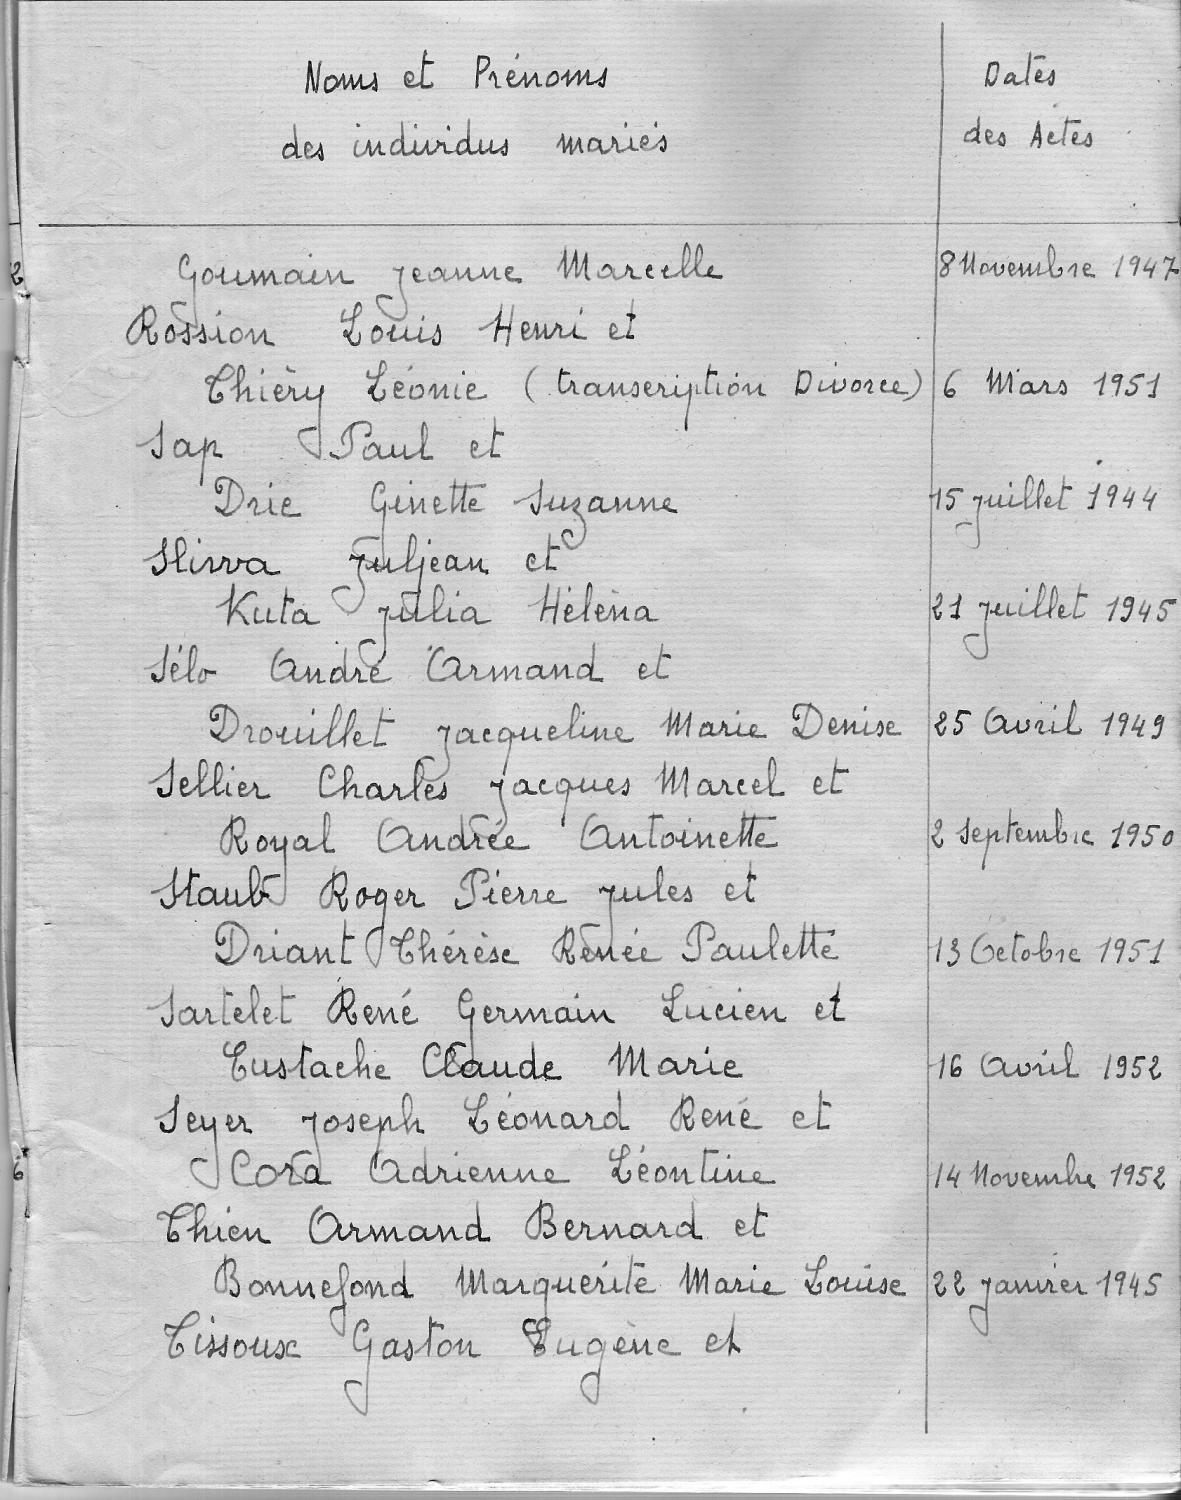 Noms et Prénoms
Dates
des individus mariés
des Actes
2
Goumain Jeanne Marcelle 8 Novembre 1947
Rossion Louis Henri et
Thiéry Léonie (transcription Divorce) 6 Mars 1951
Sap Paul et
Drie Ginette Suzanne 15 juillet 1944
Slivva Juljean et
Kuta Julia Héléna 21 juillet 1945
Sélo André Armand et
Drouillet Jacqueline Marie Denise 25 Avril 1949
Sellier Charles Jacques Marcel et
Royal Andrée Antoinette 2 Septembre 1950
Staub Roger Pierre Jules et
Driant Thérèse Renée Paulette 13 Octobre 1951
Sartelet René Germain Lucien et
Eustache Claude Marie 16 Avril 1952
Seyer Joseph Léonard René et
6
Cora Adrienne Léontine 14 Novembre 1952
Thien Armand Bernard et
Bonnefond Marguerite Marie Louise 22 janvier 1945
Tissoux Gaston Eugène et